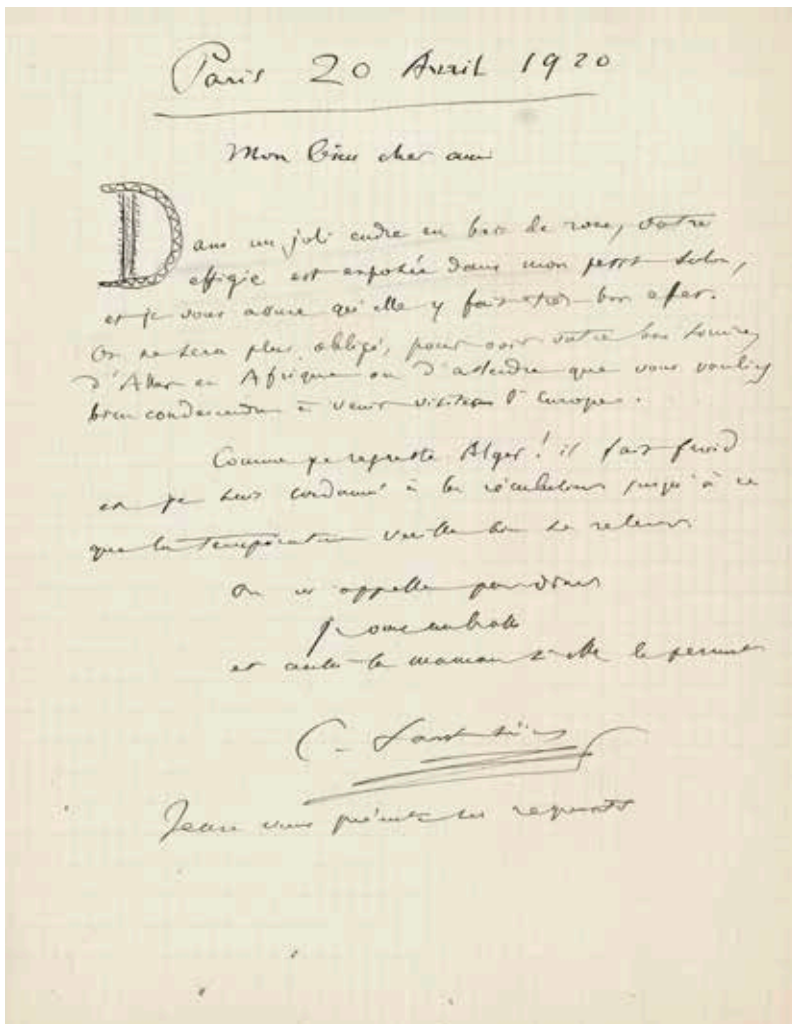 Paris 20 Avril 1920
Mon bien cher ami
Dans un joli cadre en bois de rose, votre
effigie est exposée dans mon petit salon,
et je vous assure qu'elle y fait très bon effet.
On ne sera plus obligé, pour voir votre bon sourire,
d'Aller en Afrique ou d'attendre que vous vouliez
bien condescendre à venir visiter l'Europe.
Comme je regrette Alger ! il fait froid
et je suis condamné à la réclusion jusqu'à ce
que la température veuille bien se relever
On m'appelle pour dîner
Je vous embrasse
et aussi la maman si elle le permet
C. Saint-Saëns
Jean vous présente ses respects